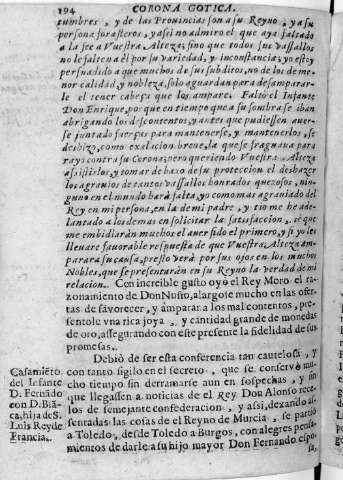 194 CORONA GOTICA.
tumbres, y de las Provincias son a su Reyno, y a su
persona forasteros, y assi no admiro el que aya faltado
a la fee a Vuestra Alteza; sino que todos sus vassallos
no le falten a èl por su variedad, y inconstancia; yo estoy
persuadido a que muchos de sus subditos, no de los de me-
nor calidad, y nobleza, solo aguardan para desamparar-
le el tener cabeça que los ampare. Faltò el Infante
Don Enrique, porque en tiempo que a su sombra se iban
abrigando los descontentos, y antes que pudiessen aver-
se juntado fuerças para mantenerse, y mantenerlos, se
deshizo, como exalacion breve, la que se fraguava para
rayo contra su Corona; pero queriendo Vuestra Alteza
assistirlos, y tomar debaxo de su proteccion el deshazer
los agravios de tantos vassallos honrados quexosos, nin-
guno en el mundo harà falta, yo como mas agraviado del
Rey en mi persona, en la de mi padre, y tio me he ade-
lantado a los demas en solicitar la satisfaccion, sè que
me embidiaràn muchos el aver sido el primero, y si yo les
llevare favorable respuesta de que Vuestra Alteza am-
pararà su causa, presto verà por sus ojos en los muchos
Nobles, que se presentaràn en su Reyno la verdad de mi
relacion. Con increible gusto oyò el Rey Moro el ra-
zonamiento de Don Nuño, alargote mucho en las ofer-
tas de favorecer, y amparar a los mal contentos, pre-
sentole vna rica joya, y cantidad grande de monedas
de oro, assegurando con este presente la fidelidad de sus
promesas.
Debiò de ser esta conferencia tan cautelosa, y
con tanto sigilo en el secreto, que se conservò mu-
cho tiempo sin derramarse aun en sospechas, y sin
que llegassen a noticias de el Rey Don Alonso rece-
los de semejante confederacion, y assi, dexando as-
sentadas las cosas de el Reyno de Murcia, se partiò
a Toledo, desde Toledo a Burgos, con alegres pensa-
mientos de darle a su hijo mayor Don Fernando espo-
sa,
Casamiẽto
del Infante
D. Fernãdo
con D. Blã-
ca, hija de S.
Luis Rey de
Francia.